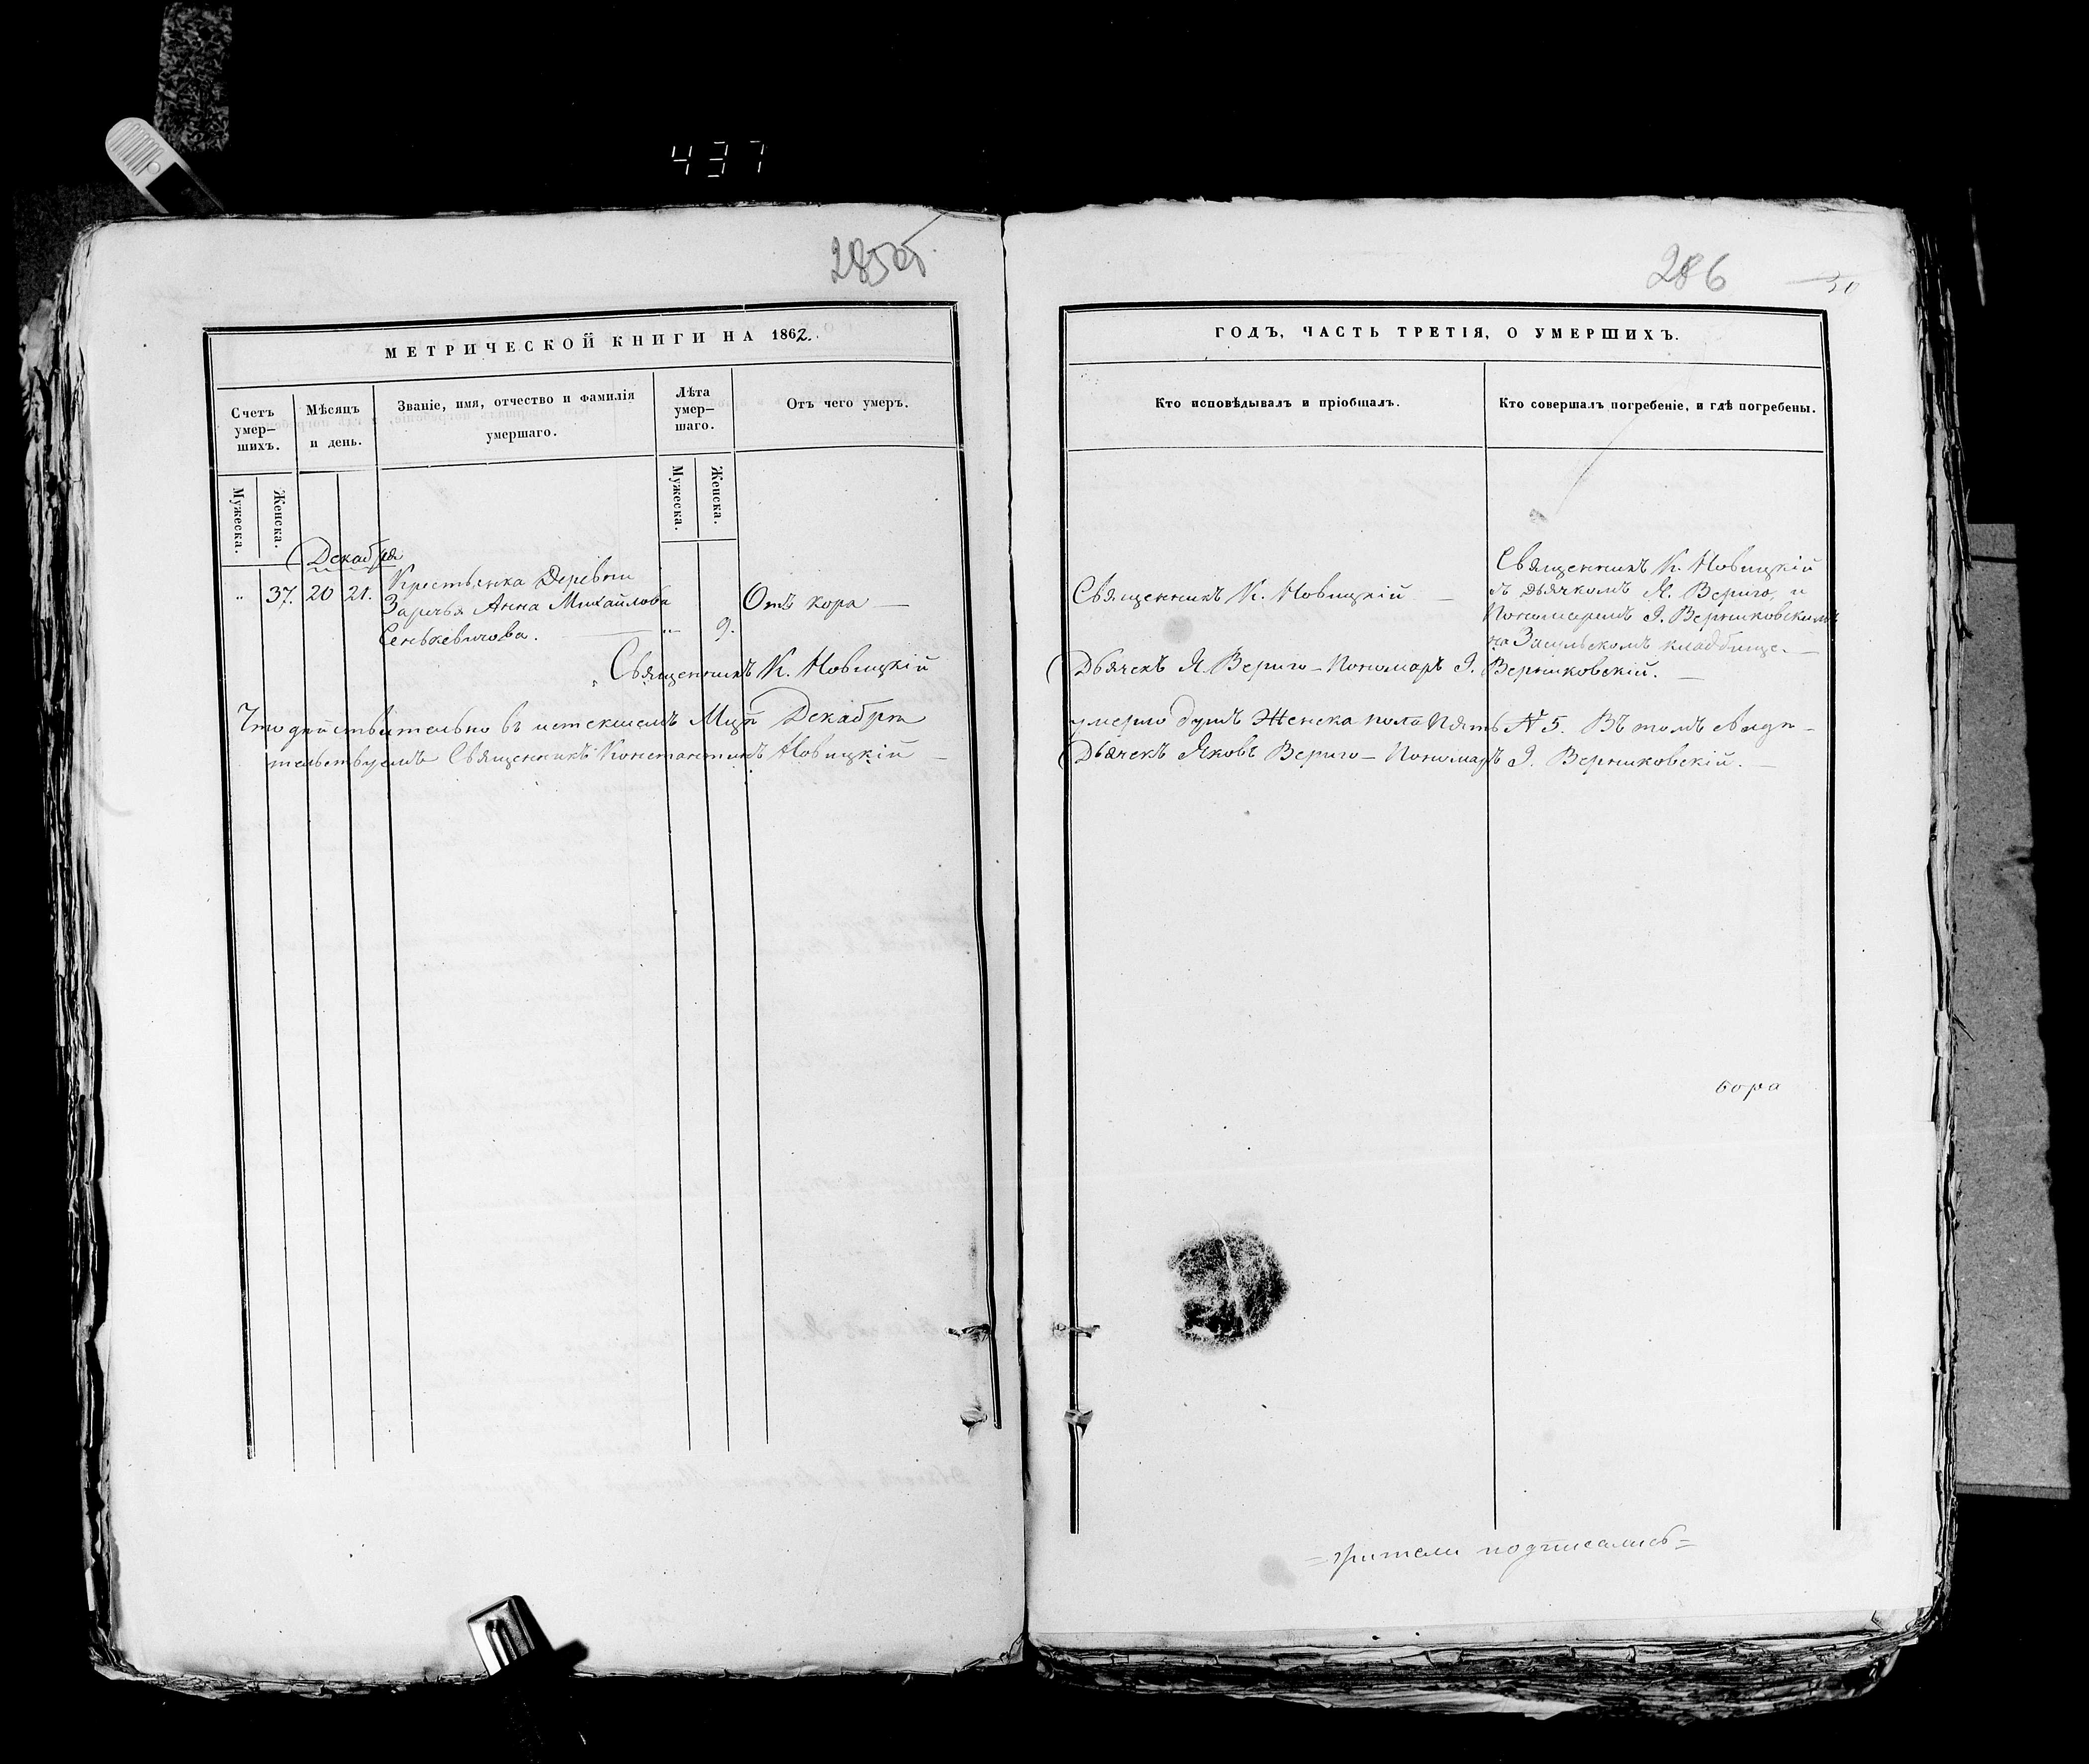 437
285об.
МЕТРИЧЕСКОЙ КНИГИ НА 1862.
Счетъ умер-шихъ.
Мѣсяцъ и день.
Званіе, имя, отчество и фамилія умершаго.
Лѣта умер-шаго.
Отъ чего умеръ.
Мужеска.
Женска.
Мужеска.
Женска.
Декабря
" 37. 20 21. Крестьянка Деревни
Заречья Анна Михайлова
Сенькевичова. " 9. Отъ кора
Священникъ К. Новицкій
Что действительно въ истекшемъ Мцѣ Декабрѣ
тельствуемъ Священникъ Константинъ Новицкій
286
30
ГОДЪ, ЧАСТЬ ТРЕТІЯ, О УМЕРШИХЪ.
Кто исповѣдывалъ и пріобщалъ.
Кто совершалъ погребеніе, и гдѣ погребены.
Священникъ К. Новицкій
Священникъ К. Новицкій
съ дьячкомъ Я. Вериго, и
Пономаремъ І. Верниковскимъ
на Засульскомъ кладбище.
Дьячекъ Я. Вериго - Пономарь І. Верниковскій.
умерло душъ Женска пола Пять № 5. Въ томъ свидѣ-
Дьячекъ Яковъ Вериго - Пономарь І. Верниковскій.
бора
=зрители подписались=